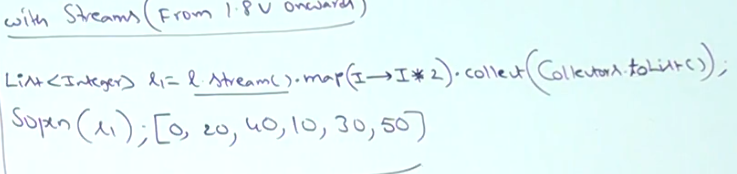 with Streams (From 1.8V onwards)
List<Integer> l1 = l.stream().map(I→I*2).collect(Collectors.toList());
Sopln(l1); [0, 20, 40, 10, 30, 50]